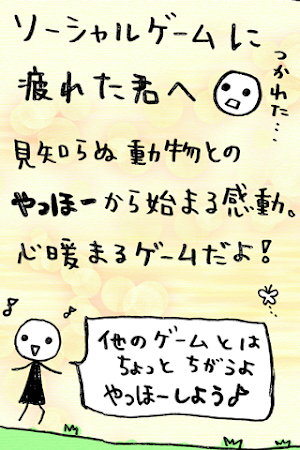 ソーシャルゲームに
疲れた君へ
つかれた…
見知らぬ動物との
やっほーから始まる感動。
心暖まるゲームだよ!
他のゲームとは
ちょっとちがうよ
やっほーしよう♪